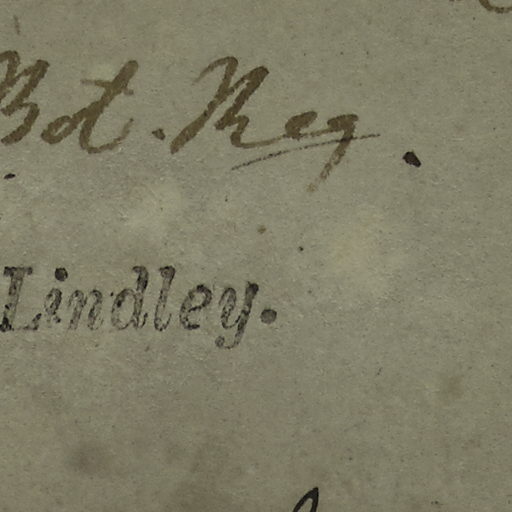 Bot. Reg.
Lindley.